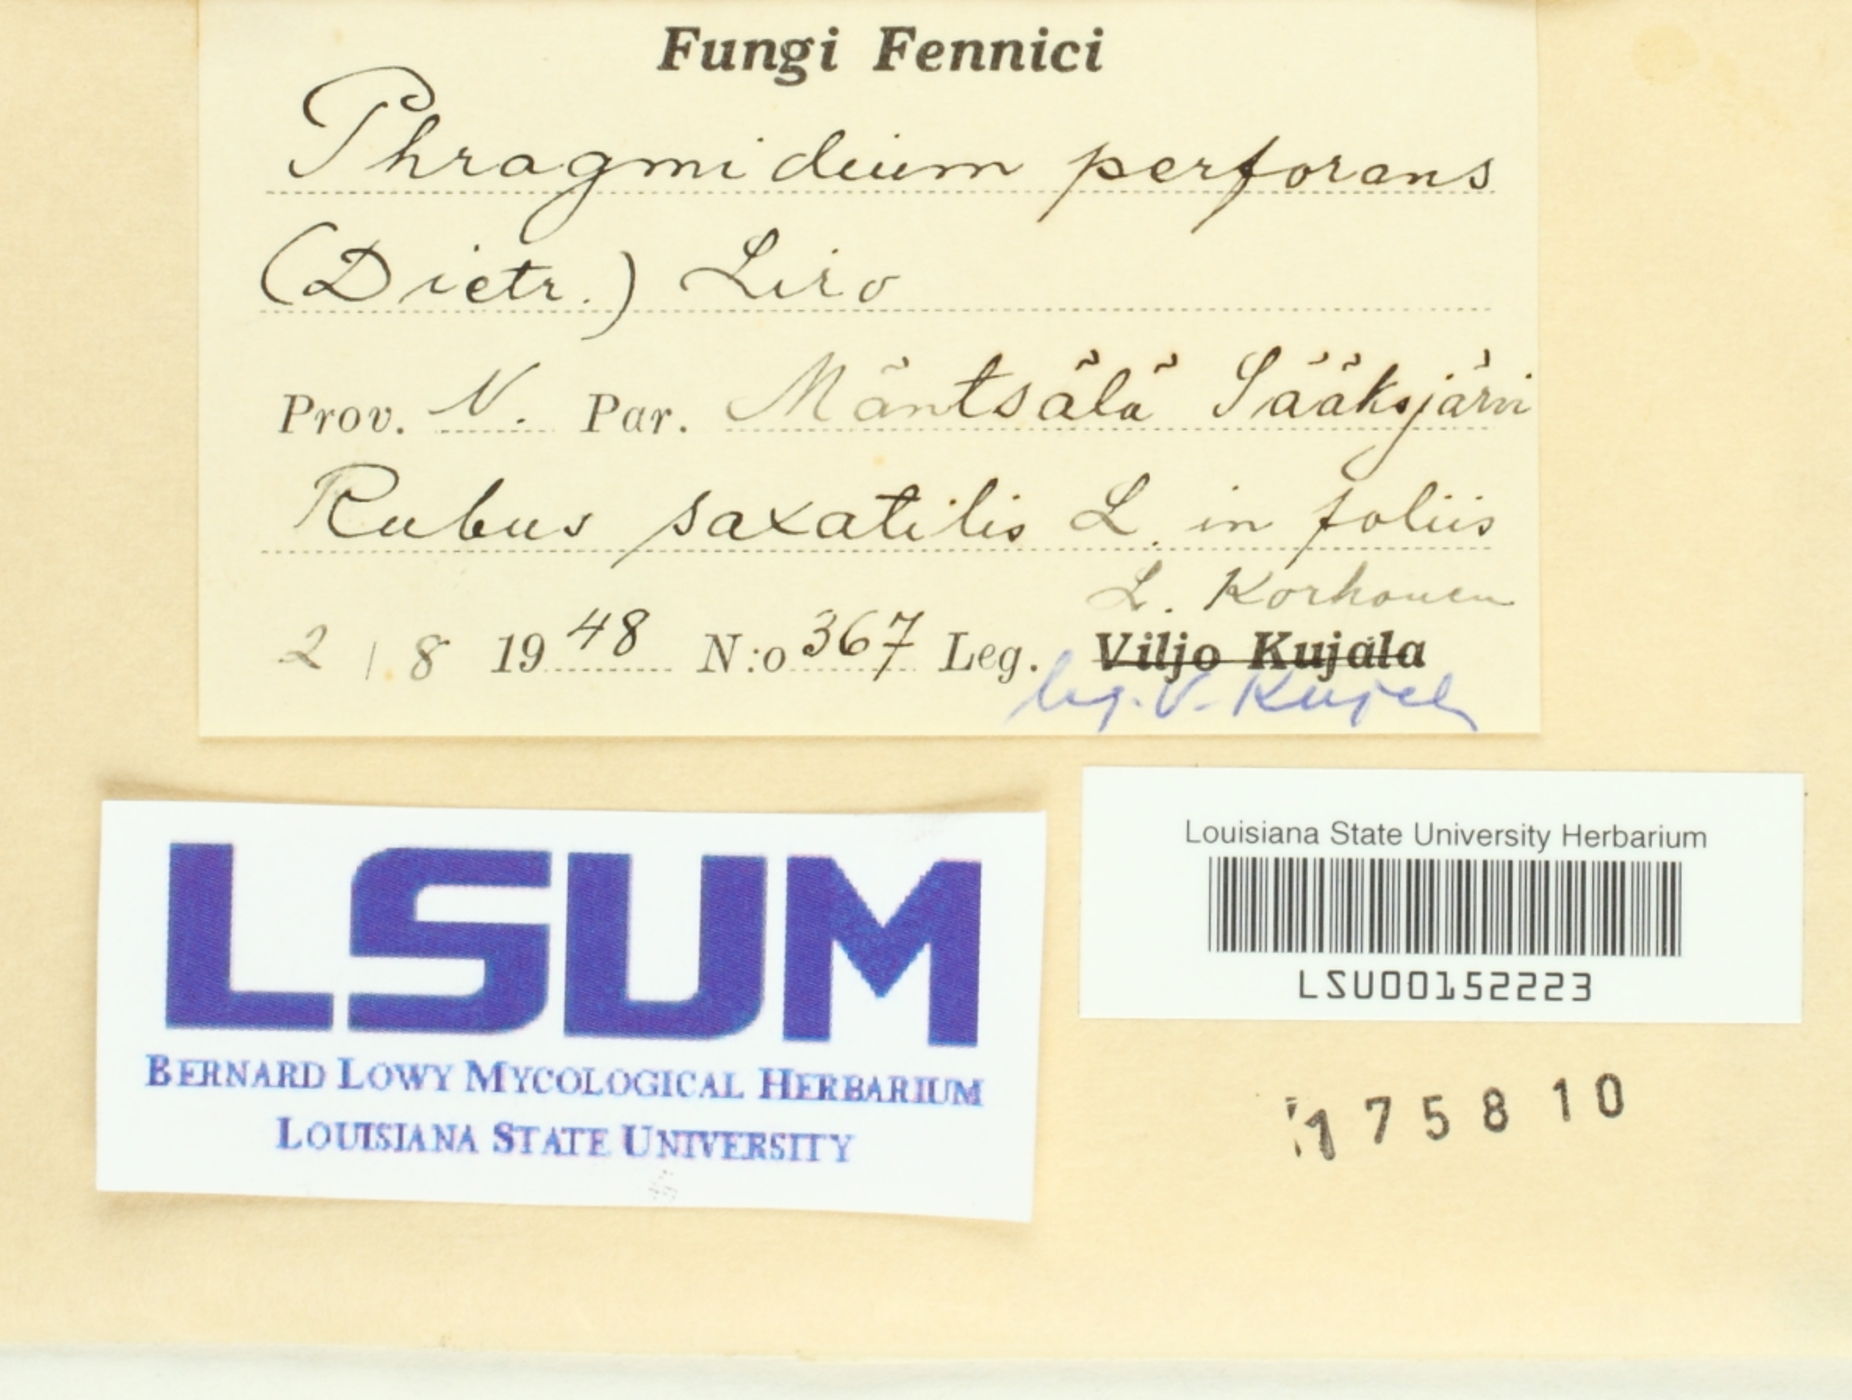 Fungi Fennici
Phragmidium perforans
(Dietr.) Liro
Prov. N. Par. Mäntsälä Sääksjärvi
Rubus saxatilis L. in foliis
L. Korhonen
2 | 8 1948 N:o 367 Leg. Viljo Kujala
leg. V. Kujala
LSUM
BERNARD LOWY MYCOLOGICAL HERBARIUM
LOUISIANA STATE UNIVERSITY
Louisiana State University Herbarium
LSU00152223
175810